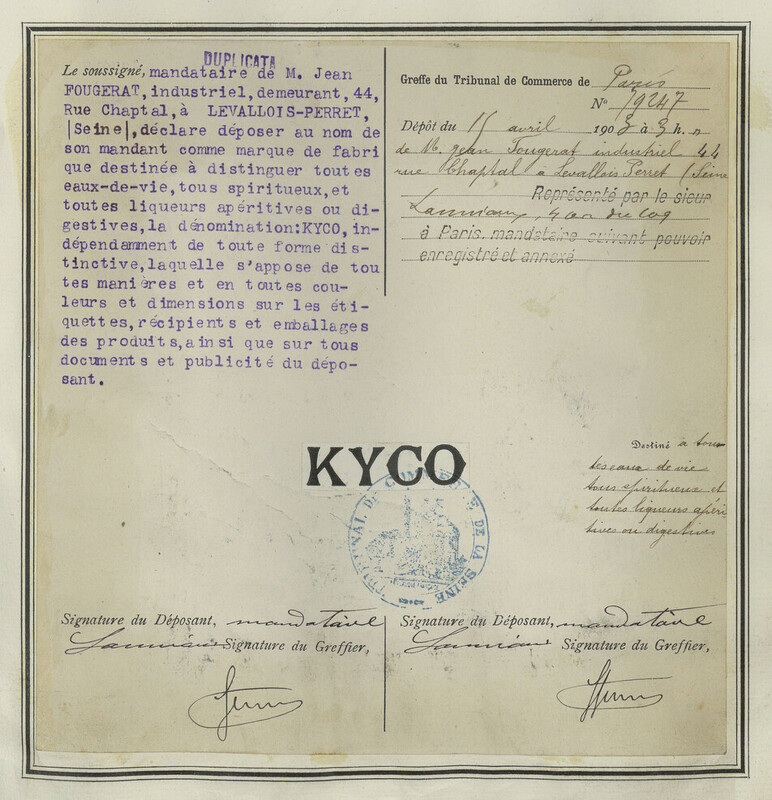 DUPLICATA
Le soussigné, mandataire de M. Jean
FOUGERAT, industriel, demeurant, 44,
Rue Chaptal, à LEVALLOIS-PERRET,
|Seine|, déclare déposer au nom de
son mandant comme marque de fabri
que destinée à distinguer toutes
eaux-de-vie, tous spiritueux, et
toutes liqueurs apéritives ou di-
gestives, la dénomination: KYCO, in-
dépendamment de toute forme dis-
tinctive, laquelle s'appose de tou
tes manières et en toutes cou-
leurs et dimensions sur les éti-
quettes, récipients et emballages
des produits, ainsi que sur tous
documents et publicité du dépo-
sant.
Greffe du Tribunal de Commerce de Paris
N° 79247
Dépôt du 15 avril 1903 à 3 h.
de M. Jean Fougerat industriel 44
rue Chaptal à Levallois Perret (Seine
Représenté par le sieur
du coq
à Paris mandataire suivant pouvoir
enregistré et annexé
KYCO
Destiné à tou
tes eaux de vie
tous spiritueux et
toutes liqueurs apéri
tives ou digestives
TRIBUNAL DE COMMERCE DE LA SEINE
Signature du Déposant, mandataire
Signature du Greffier,
Signature du Déposant, mandataire
Signature du Greffier,